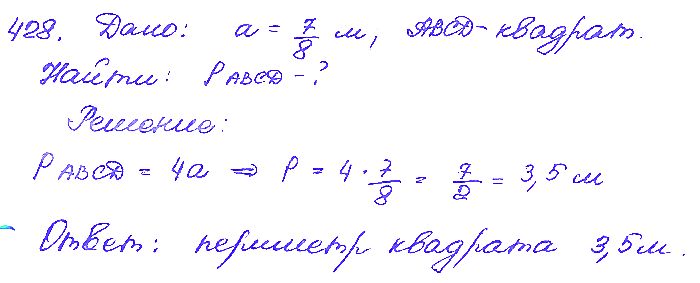 428. Дано: a = 7/8 м, ABCD - квадрат.
Найти: P ABCD - ?
Решение:
P ABCD = 4a ⇒ P = 4 · 7/8 = 7/2 = 3,5 м
Ответ: периметр квадрата 3,5 м.